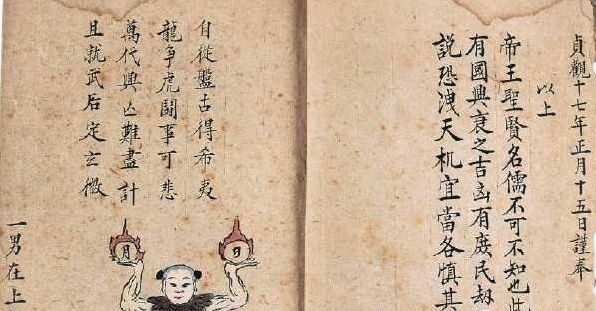 貞觀十七年正月十五日謹奉
以上
帝王聖賢名儒不可不知也此
有國興衰之吉凶有庶民劫
説恐洩天机宜當各慎其
自從盤古得希夷
龍争虎鬪事可悲
萬代興亡難盡計
且就武后定玄微
日
月
一男在上